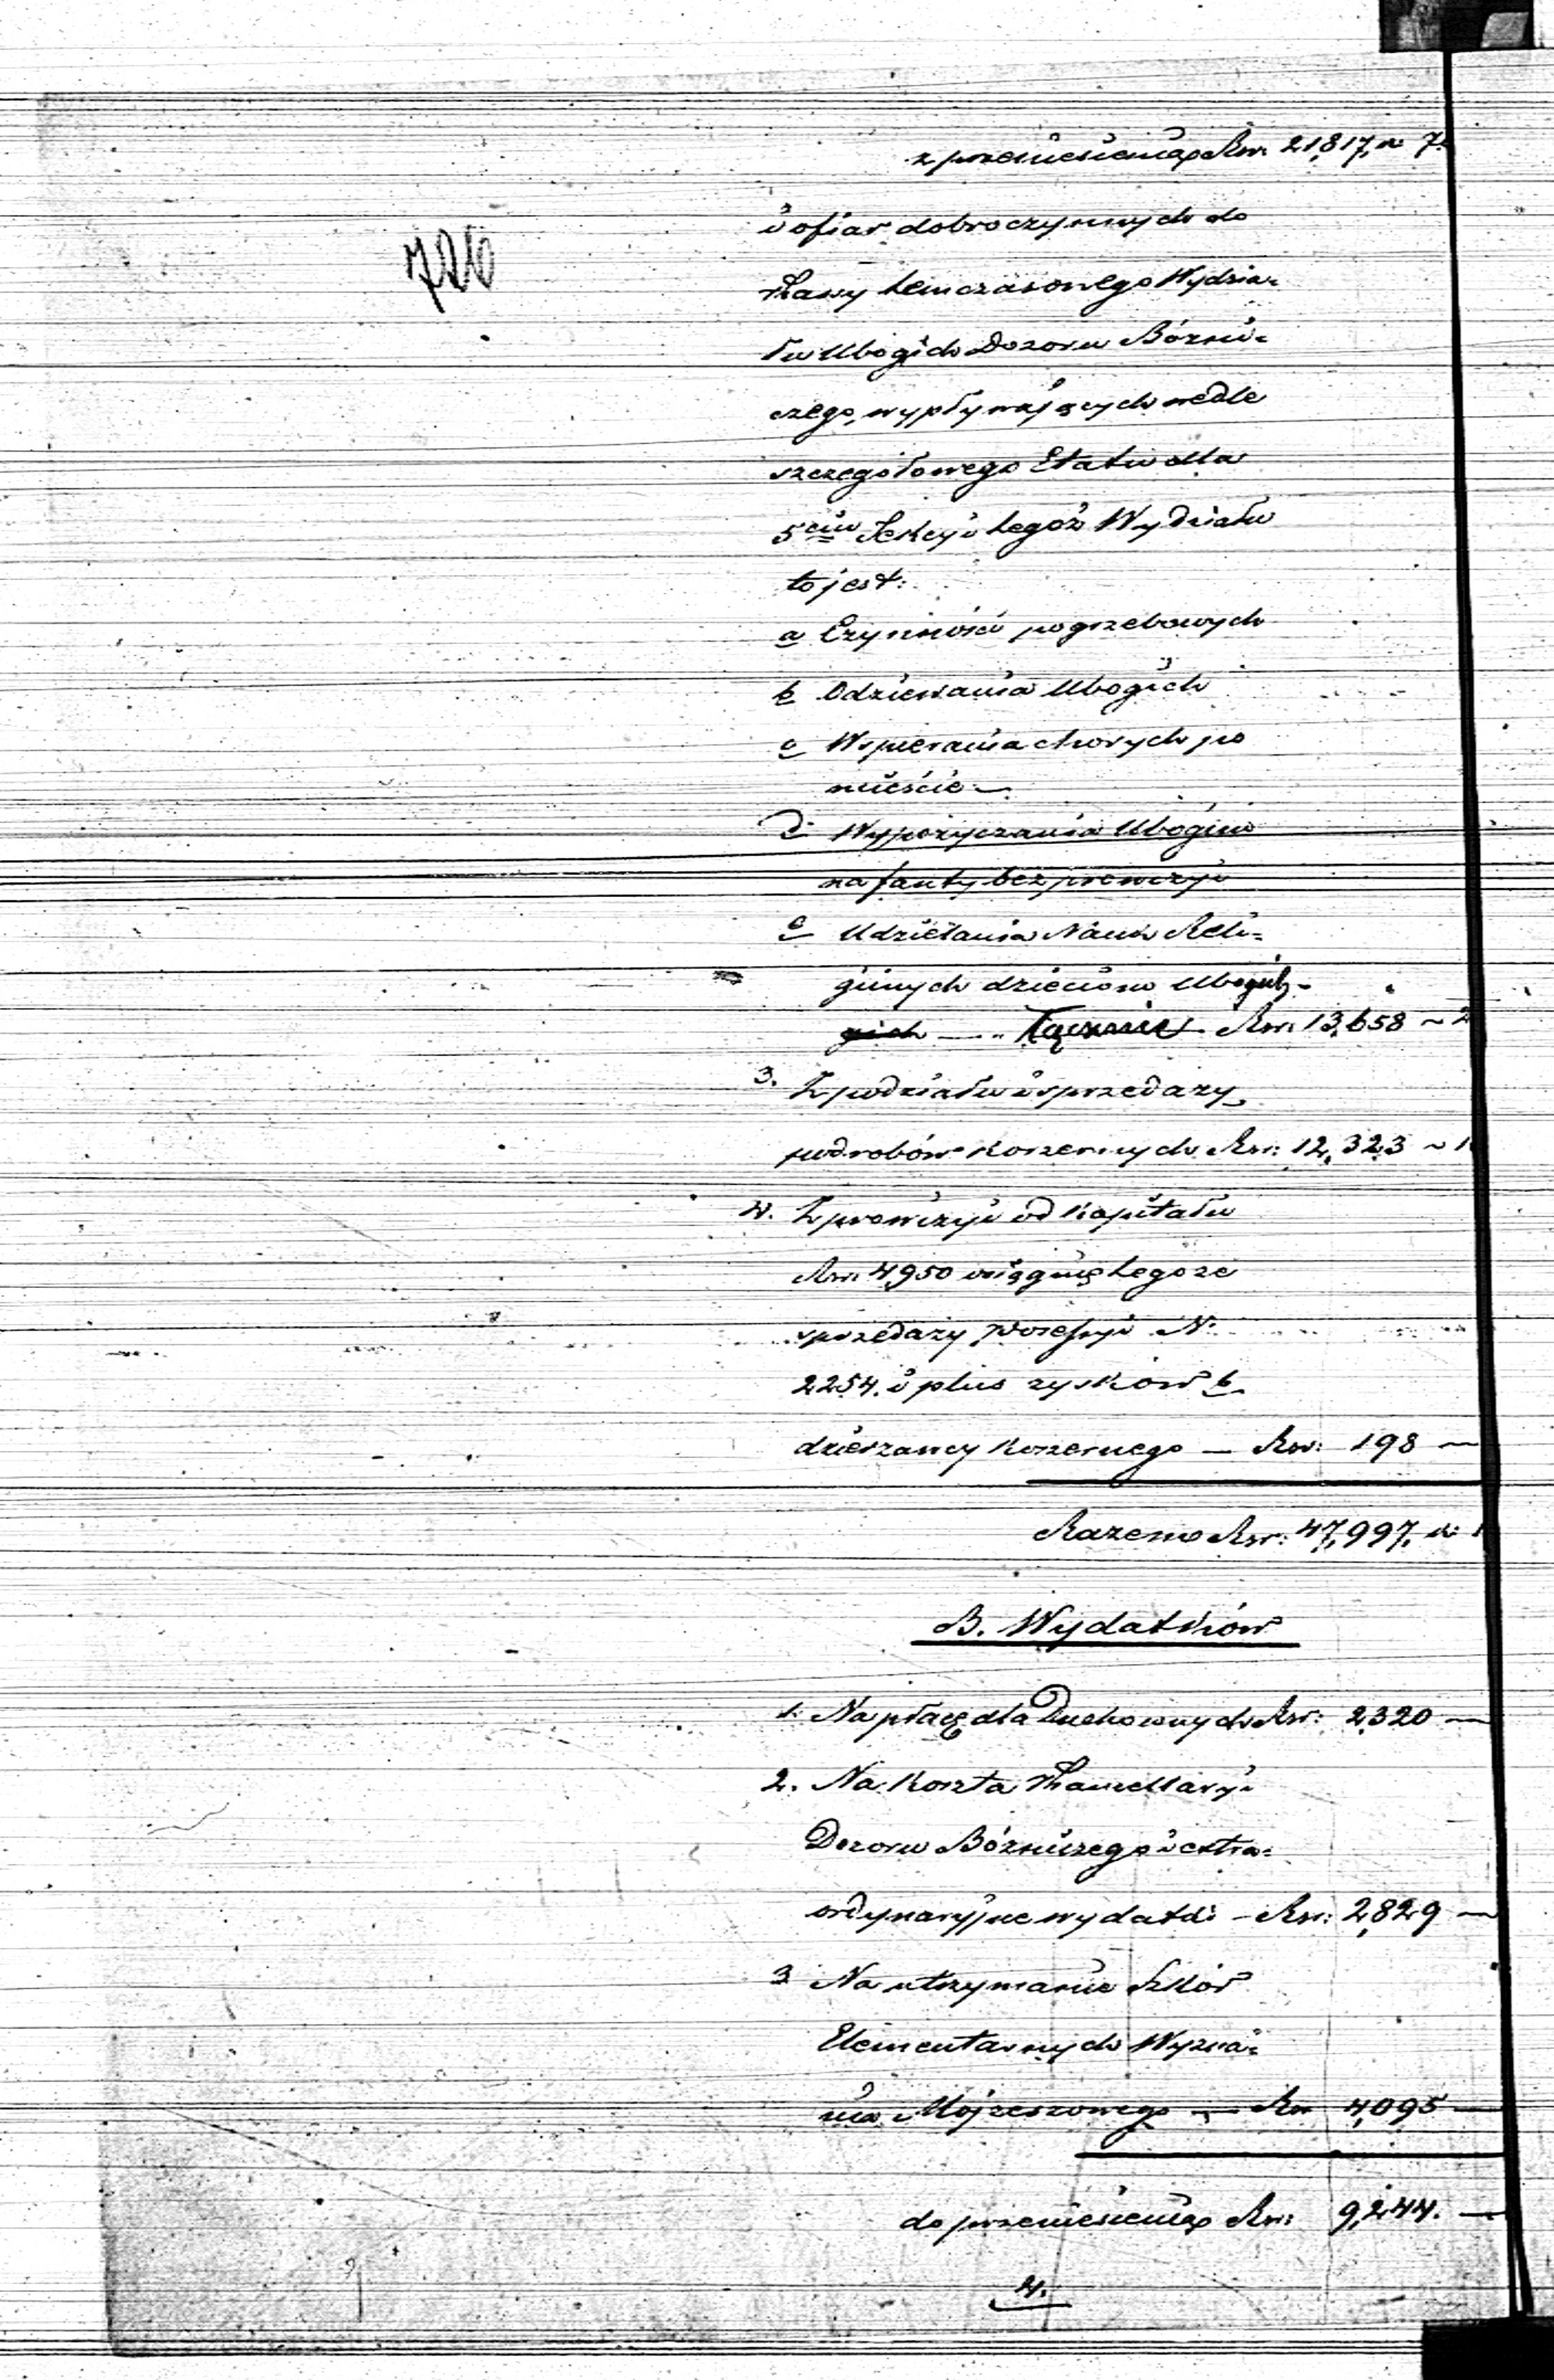 z przeniesienia Rsr. 21,817, k. 7
726
i ofiar dobroczynnych do
Kassy temczasowego Wydzia=
łu Ubogich Dozoru Bóżni=
czego, wypływających wedle
szczegółowego Etatu dla
5ciu Sekcyi tegoż Wydziału
to jest:
a Czynności pogrzebowych
b Odziewania Ubogich
c Wspierania chorych po
mieście —
d Wypożyczania Ubogim
na fanty bez prowizyi
e Udzielania Nauk Reli=
gijnych dzieciom Ubogich
gich — Łącznie Rsr. 13,658 ~ 2
3. Z podziału i sprzedaży
podrobów koszernych Rsr: 12,323 ~ 1
4. Z prowizyi od kapitału
Rsr. 4,950 osiągniętego ze
sprzedaży possesyi N.
2254. i plus zysków b.
dzierżawcy koszernego — Rsr: 198 —
Razem Rsr: 47,997, k: 1
B. Wydatków
1. Na płacę dla Duchownych Rsr: 2,320 —
2. Na koszta Kancellaryi
Dozoru Bóżniczego i extra=
ordynaryjne wydatki — Rsr: 2,829 —
3 Na utrzymanie Szkół
Elementarnych Wyzna=
nia Mojżeszowego — Rsr 4,095 —
do przeniesienia Rsr: 9,244. —
4.